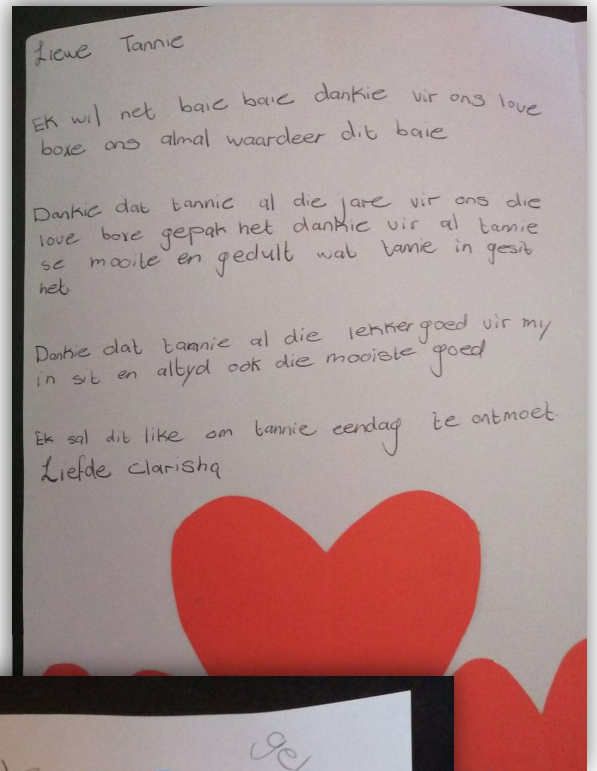 Liewe Tannie
Ek wil net baie baie dankie vir ons love
boxe ons almal waardeer dit baie
Dankie dat tannie al die jare vir ons die
love boxe gepak het dankie vir al tannie
se mooite en gedult wat tanie in gesit
het
Dankie dat tannie al die lekkergoed vir my
in sit en altyd ook die mooiste goed
Ek sal dit like om tannie eendag te ontmoet.
Liefde Clarisha